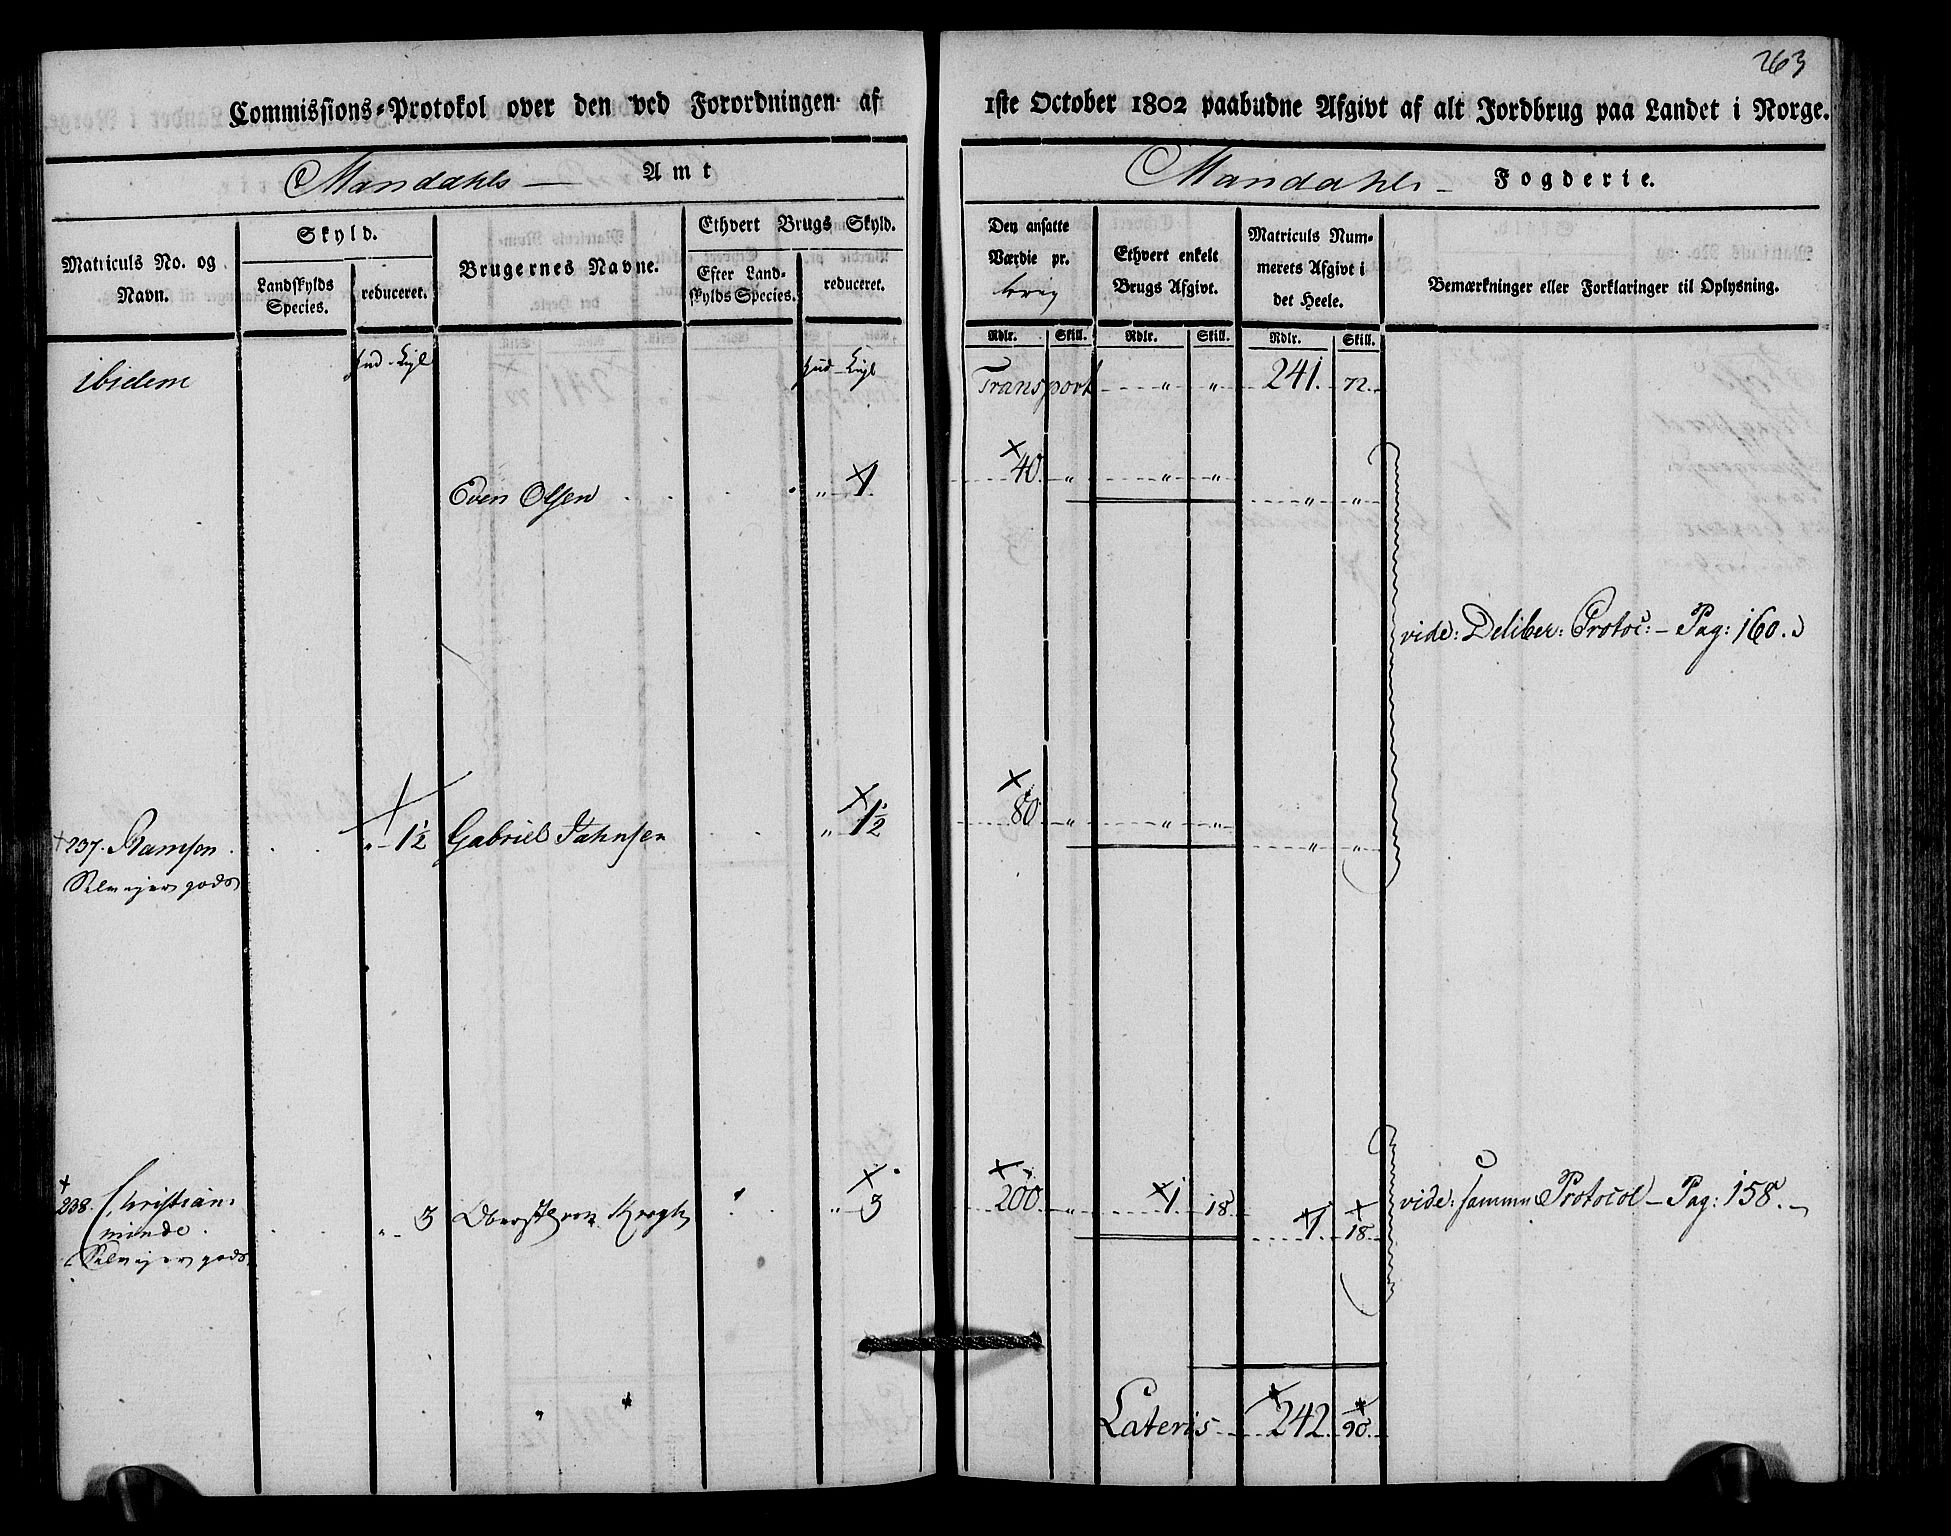 263
Commissions-Protokol over den ved Forordningen af 1ste October 1802 paabudne Afgivt af alt Jordbrug paa Landet i Norge.
Mandahls — Amt
Mandahls – Fogderie.
Matriculs No. og Navn.
Skyld.
Landskylds Species.
reduceret.
Brugernes Navne.
Ethvert Brugs Skyld.
Efter Landskylds Species.
reduceret.
Den ansatte Værdie pr.
Ethvert enkelt Brugs Afgivt.
Matriculs Nummerets Afgivt i det Heele.
Bemærkninger eller Forklaringer til Oplysning.
Rdlr. Skill. Rdlr. Skill. Rdlr. Skill.
ibidem
Transport " " 241. 72.
Even Olsen " 1 40 " " " " "
vide: Deliber: Protoc: – Pag: 160.
237. " 1½ Gabriel Jahnsen " 1½ 80 " " " " "
Selveyer gods
238. Christian: " 3 Oberst von Krogh " 3 200 " 1. 18 1 18 vide: samme Protocol – Pag: 158.
minde.
Selveyer gods
Lateris 242. 90.